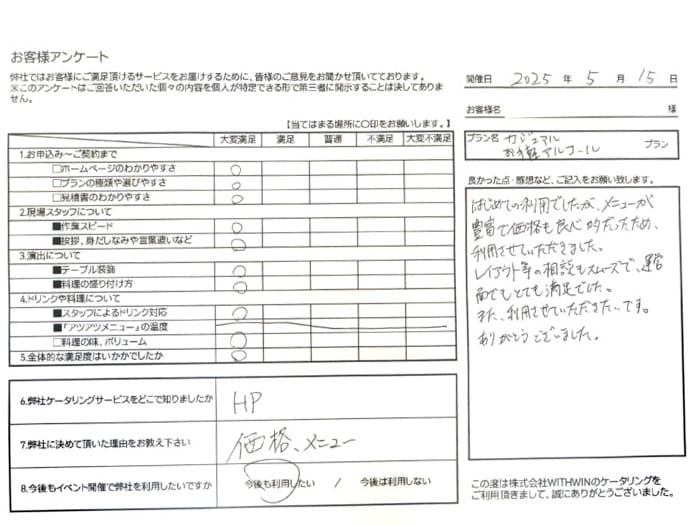 お客様アンケート
弊社ではお客様にご満足頂けるサービスをお届けするために、皆様のご意見をお聞かせ頂いております。
※このアンケートはご回答いただいた個々の内容を個人が特定できる形で第三者に開示することは決してありません。
開催日 2025 年 5 月 15 日
お客様名 様
プラン名 カジュアル
お手軽アルコール プラン
【当てはまる場所に〇印をお願いします。】
大変満足 満足 普通 不満足 大変不満足
1.お申込み～ご契約まで
□ホームページのわかりやすさ 〇
□プランの種類や選びやすさ 〇
□見積書のわかりやすさ 〇
2.現場スタッフについて
■作業スピード 〇
■挨拶、身だしなみや言葉遣いなど 〇
3.演出について
■テーブル装飾 〇
■料理の盛り付け方 〇
4.ドリンクや料理について
■スタッフによるドリンク対応 〇
■『アツアツメニュー』の温度
□料理の味、ボリューム 〇
5.全体的な満足度はいかがでしたか 〇
6.弊社ケータリングサービスをどこで知りましたか HP
7.弊社に決めて頂いた理由をお教え下さい 価格、メニュー
8.今後もイベント開催で弊社を利用したいですか 今後も利用したい / 今後は利用しない
良かった点・感想など、ご記入をお願い致します。
はじめての利用でしたが、メニューが
豊富で価格も良心的だったため、
利用させていただきました。
レイアウト等の相談もスムーズで、運営
面でもとても満足でした。
また、利用させていただきたいです。
ありがとうございました。
この度は株式会社WITHWINのケータリングを
ご利用頂きまして、誠にありがとうございました。